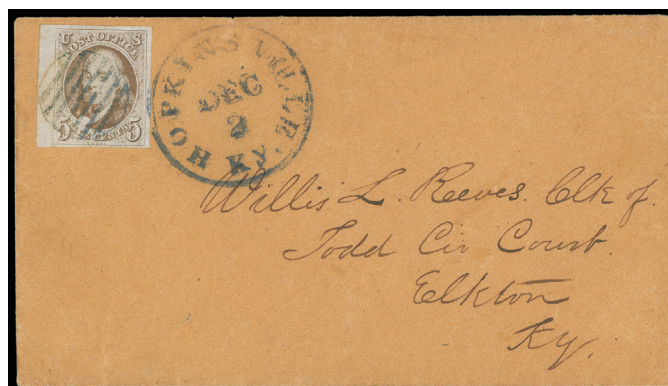 U S
POST OFFICE
5 CENTS 5
HOPKINSVILLE KY.
DEC
2
Willis L. Reeves. Clk of.
Todd Cir Court.
Elkton
Ky.